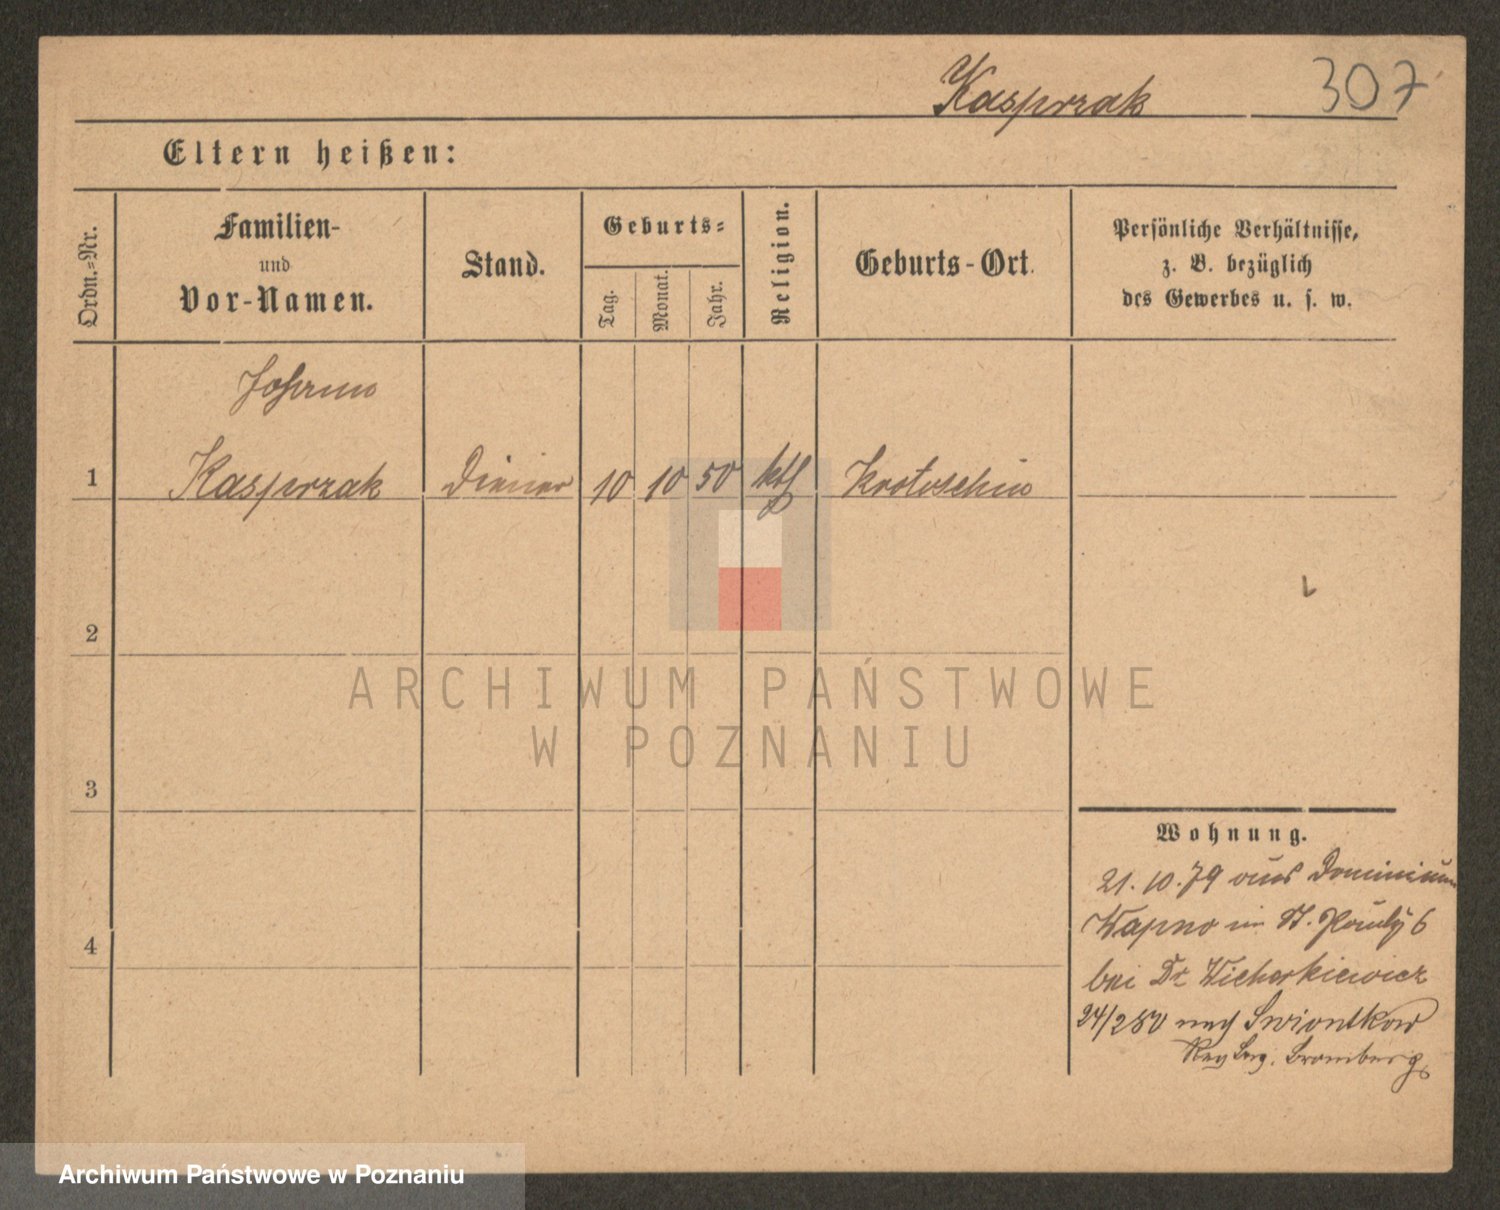 Kasprzak
307
Eltern heißen:
Ordn.-Nr.
Familien-
und
Vor-Namen.
Stand.
Geburts-
Tag.
Monat.
Jahr.
Religion.
Geburts-Ort.
Persönliche Verhältnisse,
z. B. bezüglich
des Gewerbes u. s. w.
Johann
1 Kasprzak Diener 10 10 50 kth Krotoschin
2
3
4
ARCHIWUM PAŃSTWOWE
W POZNANIU
Wohnung.
21.10.79 aus Dominium
Wapno in St. Pauly 6
bei Dr Wicherkiewicz
24/2 80 nach Swiontkow
Bromberg
Archiwum Państwowe w Poznaniu